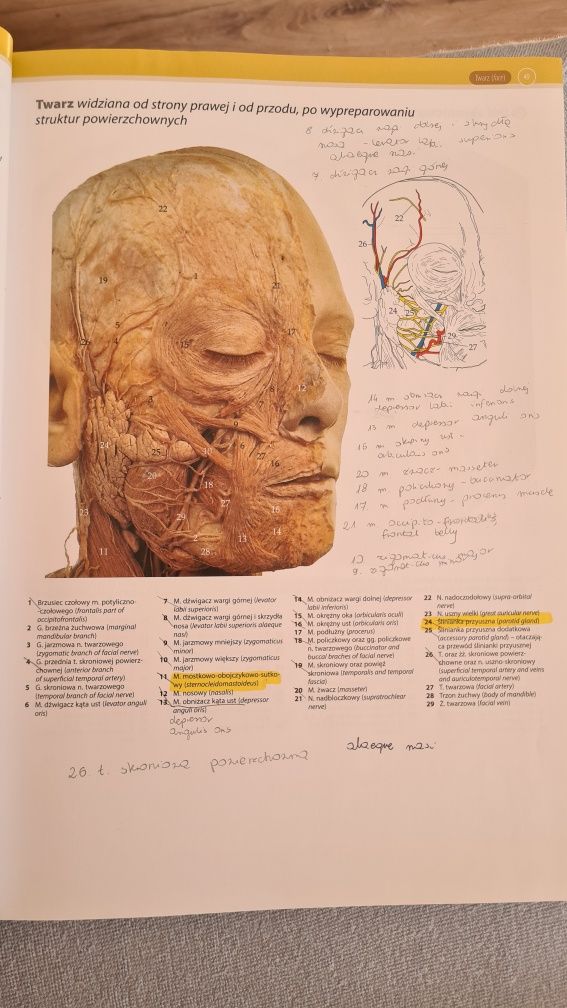 Twarz (face) 49
Twarz widziana od strony prawej i od przodu, po wypreparowaniu
struktur powierzchownych
8 dźwigacz wargi dolnej i skrzydła
nosa - levator labii superioris
alaeque nasi.
7 dźwigacz wargi górnej
22
22
19
1
21
26
5
4
17
15
24
25
26
29
27
3
8
12
9
24
25
10
6
27
16
20
18
27
23
29
16
14
2
13
11
28
14 m obniżacz wargi dolnej
depressor labii inferioris
13 m depressor anguli oris
16 m okrężny ust -
orbicularis oris
20 m żwacz - masseter
18 m policzkowy - buccinator
17 m podłużny - procerus muscle
21 m occipito-frontalis
frontal belly
10 zygomaticus major
9. zygomaticus minor
1 Brzusiec czołowy m. potyliczno-
-czołowego (frontalis part of
occipitofrontalis)
2 G. brzeżna żuchwowa (marginal
mandibular branch)
3 G. jarzmowa n. twarzowego
(zygomatic branch of facial nerve)
4 G. przednia t. skroniowej powierz-
chownej (anterior branch
of superficial temporal artery)
5 G. skroniowa n. twarzowego
(temporal branch of facial nerve)
6 M. dźwigacz kąta ust (levator anguli
oris)
7 M. dźwigacz wargi górnej (levator
labii superioris)
8 M. dźwigacz wargi górnej i skrzydła
nosa (levator labii superioris alaeque
nasi)
9 M. jarzmowy mniejszy (zygomaticus
minor)
10 M. jarzmowy większy (zygomaticus
major)
11 M. mostkowo-obojczykowo-sutko-
wy (sternocleidomastoideus)
12 M. nosowy (nasalis)
13 M. obniżacz kąta ust (depressor
anguli oris)
depressor
angulis oris
14 M. obniżacz wargi dolnej (depressor
labii inferioris)
15 M. okrężny oka (orbicularis oculi)
16 M. okrężny ust (orbicularis oris)
17 M. podłużny (procerus)
18 M. policzkowy oraz gg. policzkowe
n. twarzowego (buccinator and
buccal braches of facial nerve)
19 M. skroniowy oraz powięź
skroniowa (temporalis and temporal
fascia)
20 M. żwacz (masseter)
21 N. nadbloczkowy (supratrochlear
nerve)
22 N. nadoczodołowy (supra-orbital
nerve)
23 N. uszny wielki (great auricular nerve)
24 Ślinianka przyuszna (parotid gland)
25 Ślinianka przyuszna dodatkowa
(accessory parotid gland) – otaczają-
ca przewód ślinianki przyusznej
26 T. oraz żż. skroniowe powierz-
chowne oraz n. uszno-skroniowy
(superficial temporal artery and veins
and auriculotemporal nerve)
27 T. twarzowa (facial artery)
28 Trzon żuchwy (body of mandible)
29 Ż. twarzowa (facial vein)
alaeque nasi
26. t. skroniowa powierzchowna